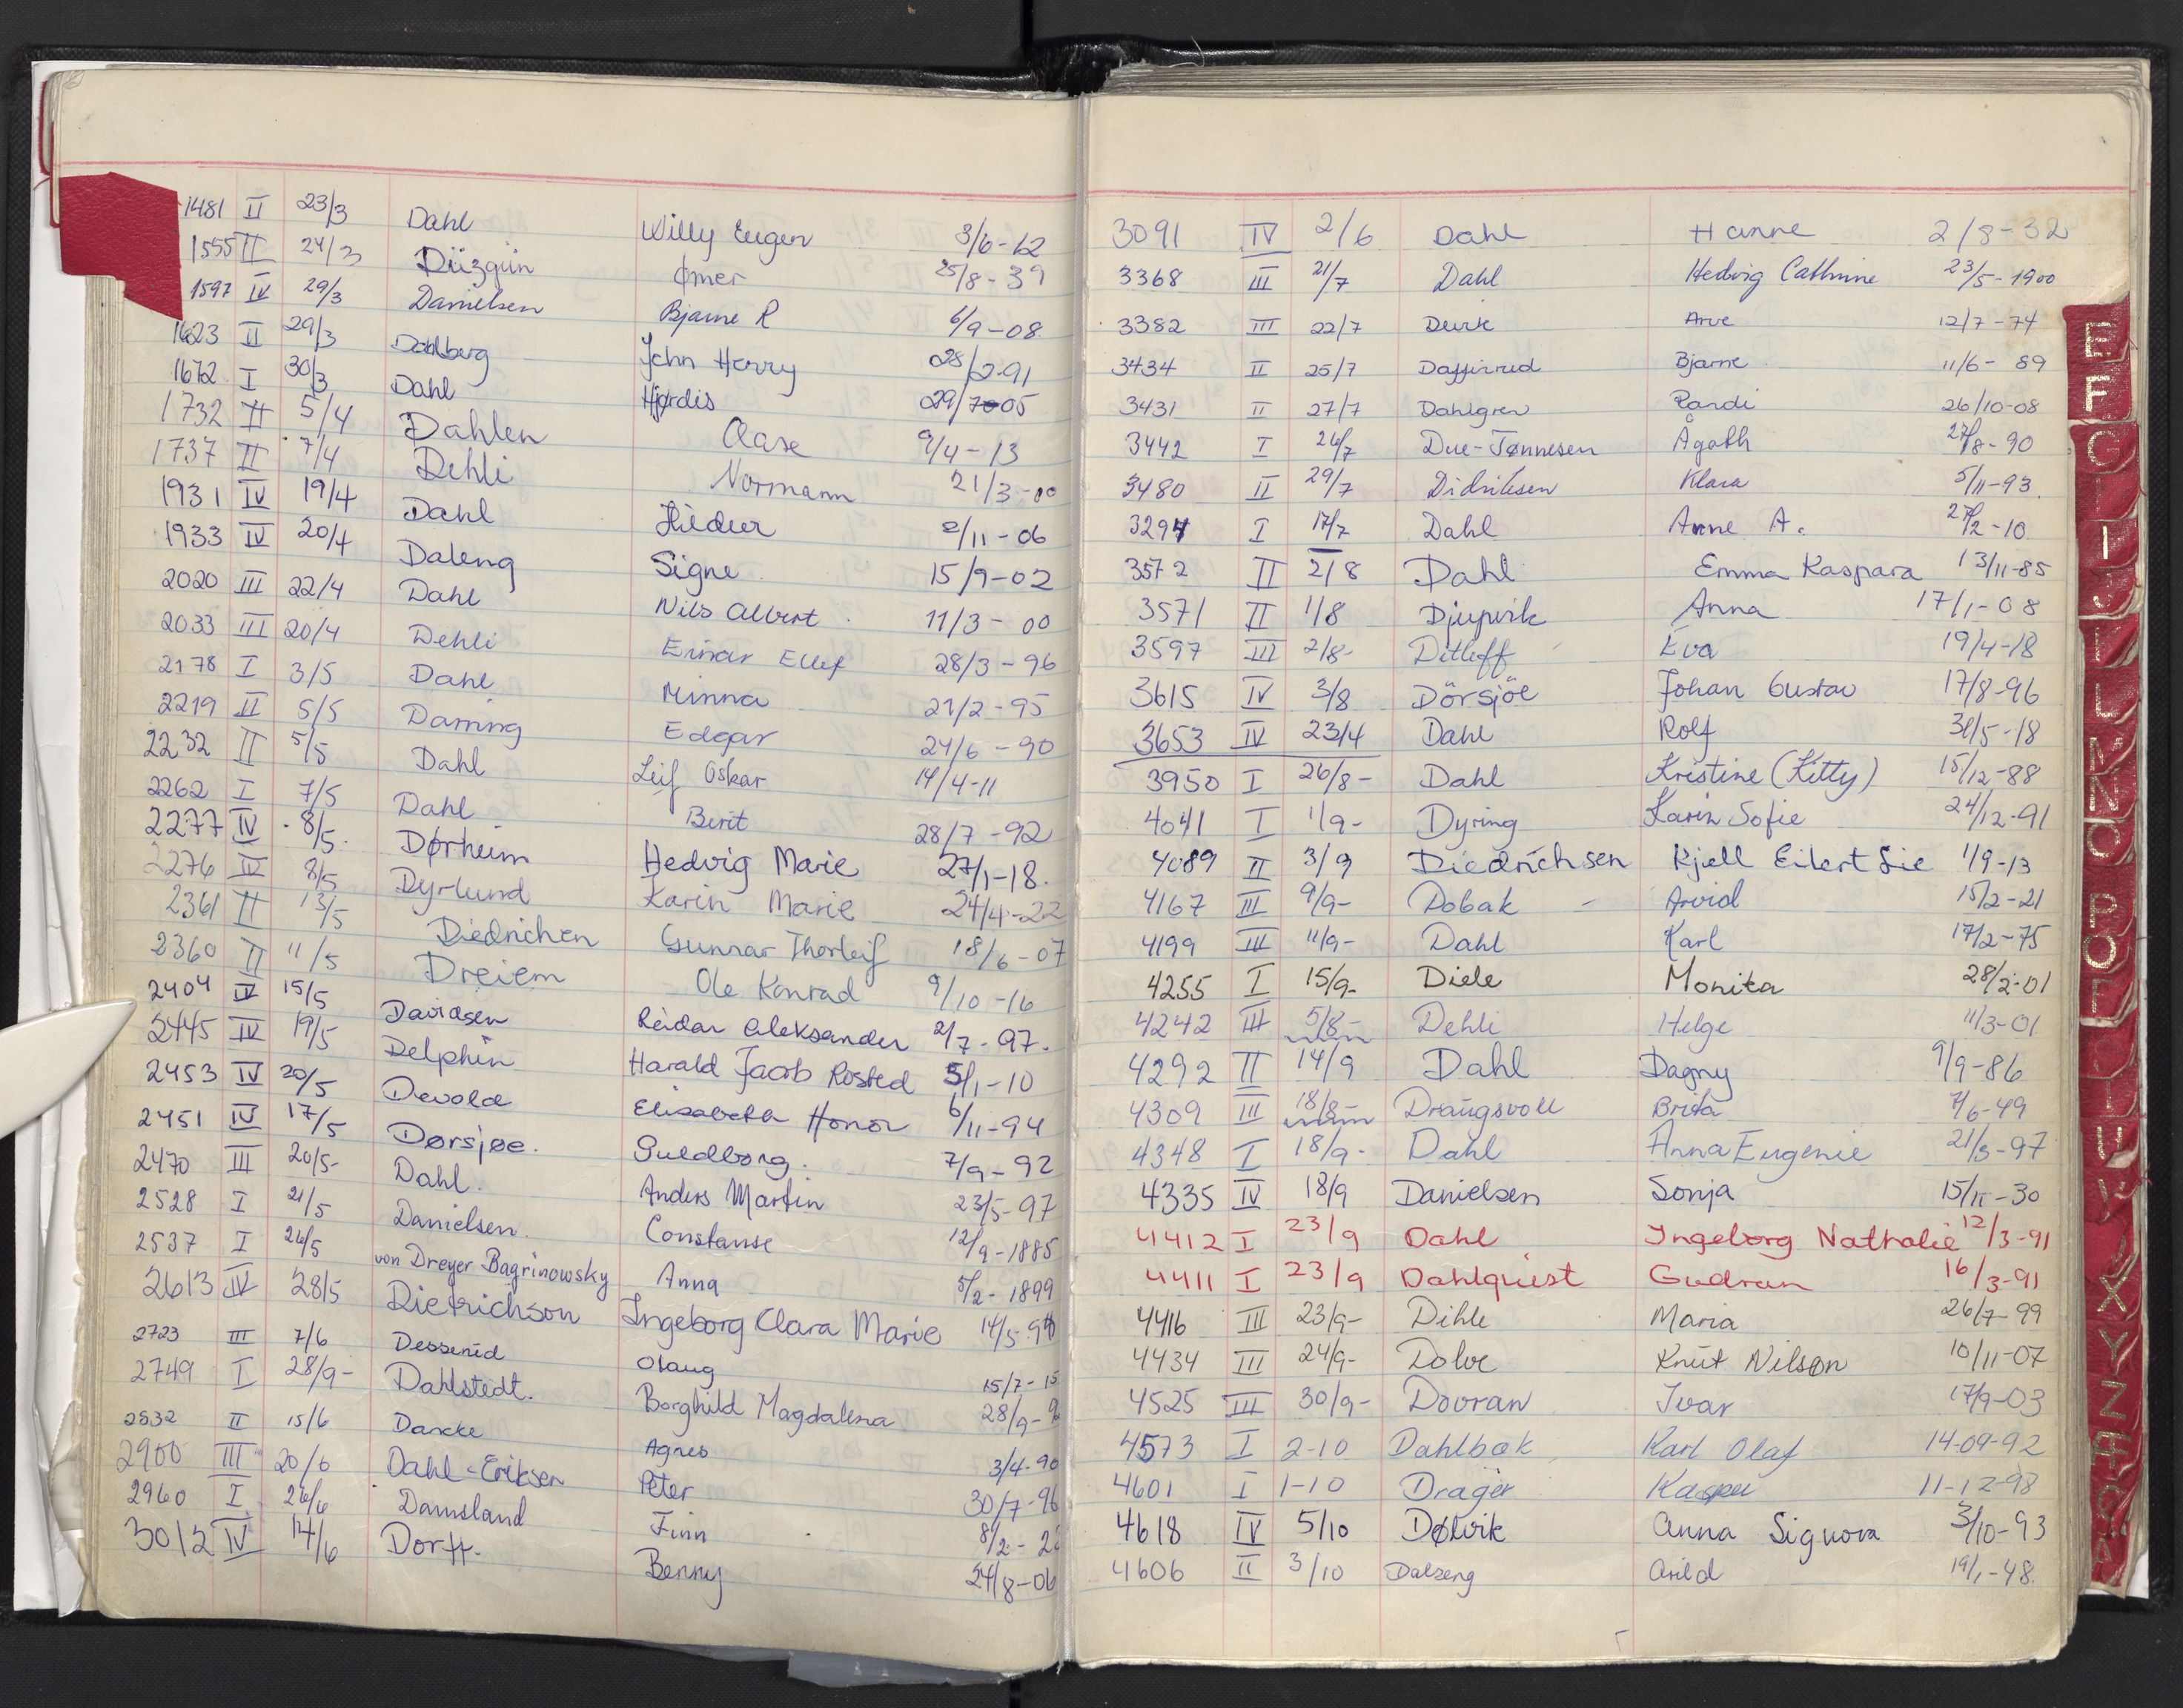 1481 II 23/3 Dahl Willy Eugen 3/6-62
1555 II 24/3 Düzgün Ømer 25/8-39
1597 IV 29/3 Danielsen Bjarne R 6/9-08
1623 II 29/3 Dahlberg John Harry 28/2-91
1672 I 30/3 Dahl Hjørdis 29/7-05
1732 II 5/4 Dahlen Aase 9/4-13
1737 II 7/4 Dehli Normann 21/3-00
1931 IV 19/4 Dahl Hildur 2/11-06
1933 IV 20/4 Daleng Signe 15/9-02
2020 III 22/4 Dahl Nils Albert 11/3-00
2033 III 20/4 Dehli Einar Ellef 28/3-96
2178 I 3/5 Dahl Minna 21/2-95
2219 II 5/5 Darring Edgar 24/6-90
2232 II 5/5 Dahl Leif Oskar 14/4-11
2262 I 7/5 Dahl Berit 28/7-92
2277 IV 8/5 Dørheim Hedvig Marie 27/1-18
2276 IV 8/5 Dyrlund Karin Marie 24/4-22
2361 II 13/5 Diedrichen Gunnar Thorleif 18/6-07
2360 II 11/5 Dreiem Ole Konrad 9/10-16
2404 IV 15/5 Davidsen Reidar Aleksander 2/7-97
2445 IV 19/5 Delphin Harald Jacob Rosted 5/1-10
2453 IV 20/5 Devold Elisabeth Honor 6/11-94
2451 IV 17/5 Dørsjøe. Guldborg. 7/9-92
2470 III 20/5- Dahl. Anders Martin 23/5-97
2528 I 21/5 Danielsen. Constanse 12/9-1885
2537 I 26/5 von Dreyer Bagrinowsky Anna 5/2-1899
2613 IV 28/5 Dietrichson Ingeborg Clara Marie 14/5-94
2723 III 7/6 Desserud Olaug 15/7-15
2749 I 28/9- Dahlstedt. Borghild Magdalena 28/9-
2832 II 15/6 Dancke Agnes 3/4-90
2900 III 20/6 Dahl-Eriksen Peter 30/7-96
2960 I 26/6 Damsland Finn 8/2-
3012 IV 14/6 Dorff. Benny 24/8-06
3091 IV 2/6 Dahl Hanne 2/8-32
3368 III 21/7 Dahl Hedvig Cathrine 23/5-1900
3382 III 22/7 Devik Arve 12/7-74
3434 II 25/7 Daffinrud Bjarne 11/6-89
3431 II 27/7 Dahlgren Randi 26/10-08
3442 I 26/7 Due-Tønnesen Ågoth 27/8-90
3480 II 29/7 Didriksen Klara 5/11-93
3294 I 17/7 Dahl Anne A. 27/2-10
3572 II 2/8 Dahl Emma Kaspara 13/11-85
3571 II 1/8 Djupvik Anna 17/1-08
3597 III 2/8- Ditleff Eva 19/4-18
3615 IV 3/8 Dörsjöe Johan Gustav 17/8-96
3653 IV 23/4 Dahl Rolf 31/5-18
3950 I 26/8- Dahl Kristine (Kitty) 15/12-88
4041 I 1/9- Dyring Karin Sofie 24/12-91
4089 II 3/9 Diedrichsen Kjell Eilert Lie 1/9-13
4167 III 9/9- Dobak - Arvid 15/2-21
4199 III 11/9- Dahl Karl 17/2-75
4255 I 15/9- Diele Monika 28/2-01
4242 III 5/8- Dehli Helge 11/3-01
4292 II 14/9 Dahl Dagny 9/9-86
4309 III 18/8- Draugsvoll Brita 7/6-49
4348 I 18/9- Dahl Anna Eugenie 21/3-97
4335 IV 18/9 Danielsen Sonja 15/11-30
4412 I 23/9 Dahl Ingeborg Nathalie 12/3-91
4411 I 23/9 Dahlquist Gudrun 16/3-91
4416 III 23/9- Dihle Maria 26/7-99
4434 III 24/9- Dolve Knut Nilson 10/11-07
4525 III 30/9- Dovran Ivar 17/9-03
4573 I 2-10 Dahlbak Karl Olaf 14-09-92
4601 I 1-10 Drager Kasper 11-12-98
4618 IV 5/10 Dølvik Anna Signora 3/10-93
4606 II 3/10 Dalseng Arild 19/1-48
E
F
G
I
J
L
N
O
P
X
Y
Z